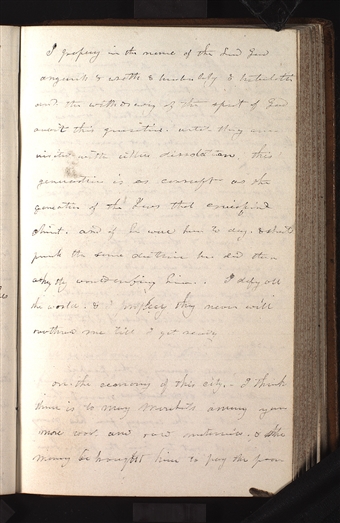 I prophecy in the name of the Lord God
anguish & wrath & tribulation &
and the withdrawing of the spirit of God
await this generation. until they are
visited with utter desolation, this
generation is as corrupt as the
generation of the Jews that crucified
Christ. and if he were here to day. & should
preach the same doctrine he did then
why they would crucify him. I defy all
the world. & I prophecy they never will
overthrow me till I get ready
on the economy of this city. I think
there is to many merchants among you
more wool and raw materials. & the
money be brought here to pay the poor